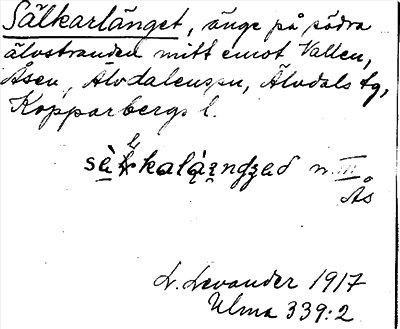 Sälkarlänget, änge på södra
älvstranden mitt emot Vallen,
Åsen, Älvdalens sn, Älvdals tg,
Kopparbergs l.
n. III
Ås
L. Levander 1917
Ulma 339:2